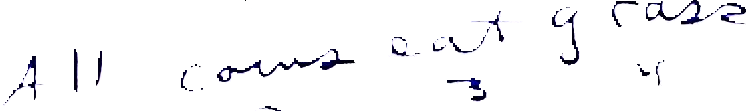 All cows eat grass
3 4